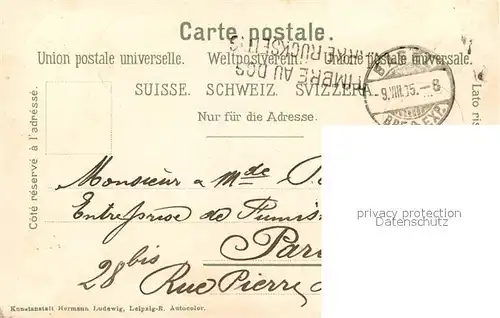 Carte postale.
Union postale universelle. Weltpostverein. Unione postale universale.
TIMBRE AU DOS
SUISSE. SCHWEIZ. SVIZZERA.
Nur für die Adresse.
Côté réservé à l'adresse.
Lato ris
9.VIII.05.-8
Monsieur & Mde P
Entreprise de Fumis
Par
28 bis
Rue Pierre
privacy protection
Datenschutz
Kunstanstalt Hermann Ludewig, Leipzig-R. Autocolor.